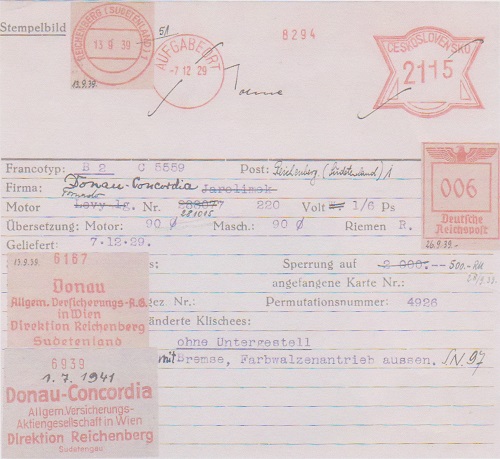 Stempelbild
REICHENBERG (SUDETENLAND) 1
13.9.39
13.9.39.
51
AUFGABEORT
-7.12.29
8294
ČESKOSLOVENSKO
2115
Francotyp: B 2 C 5559 Post: Reichenberg (Sudetenland) 1
Firma: Donau-Concordia Jarolimek
Motor Nr. 220 Volt 1/6 Ps
281015
Übersetzung: Motor: 90 Ø Masch.: 90 Ø Riemen R.
Geliefert: 7.12.29.
006
Deutsche
Reichspost
26.9.39.
Sperrung auf 2 000.-- 500.-RM
angefangene Karte Nr.:
Permutationsnummer: 4926
gez Nr.:
änderte Klischees:
ohne Untergestell
mit Bremse, Farbwalzenantrieb aussen. S.N. 97
13.9.39. 6167
Donau
Allgem. Versicherungs-A.G.
in Wien
Direktion Reichenberg
Sudetenland
6939
1. 7. 1941
Donau-Concordia
Allgem. Versicherungs-
Aktiengesellschaft in Wien
Direktion Reichenberg
Sudetengau